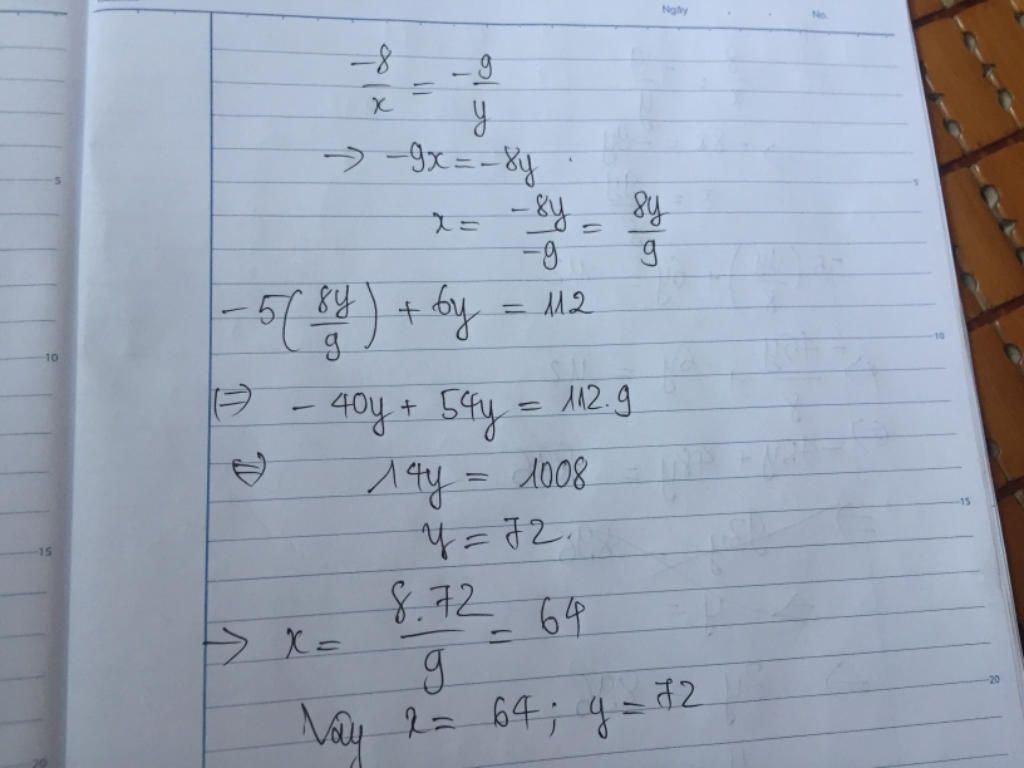 Ngày . . No.
-8/x = -9/y
→ -9x = -8y .
x = -8y/-9 = 8y/9
-5(8y/9) + 6y = 112
(=) - 40y + 54y = 112.9
(=) 14y = 1008
y = 72.
→ x = 8.72/9 = 64
Vậy x = 64; y = 72
5
10
15
20
5
10
15
20